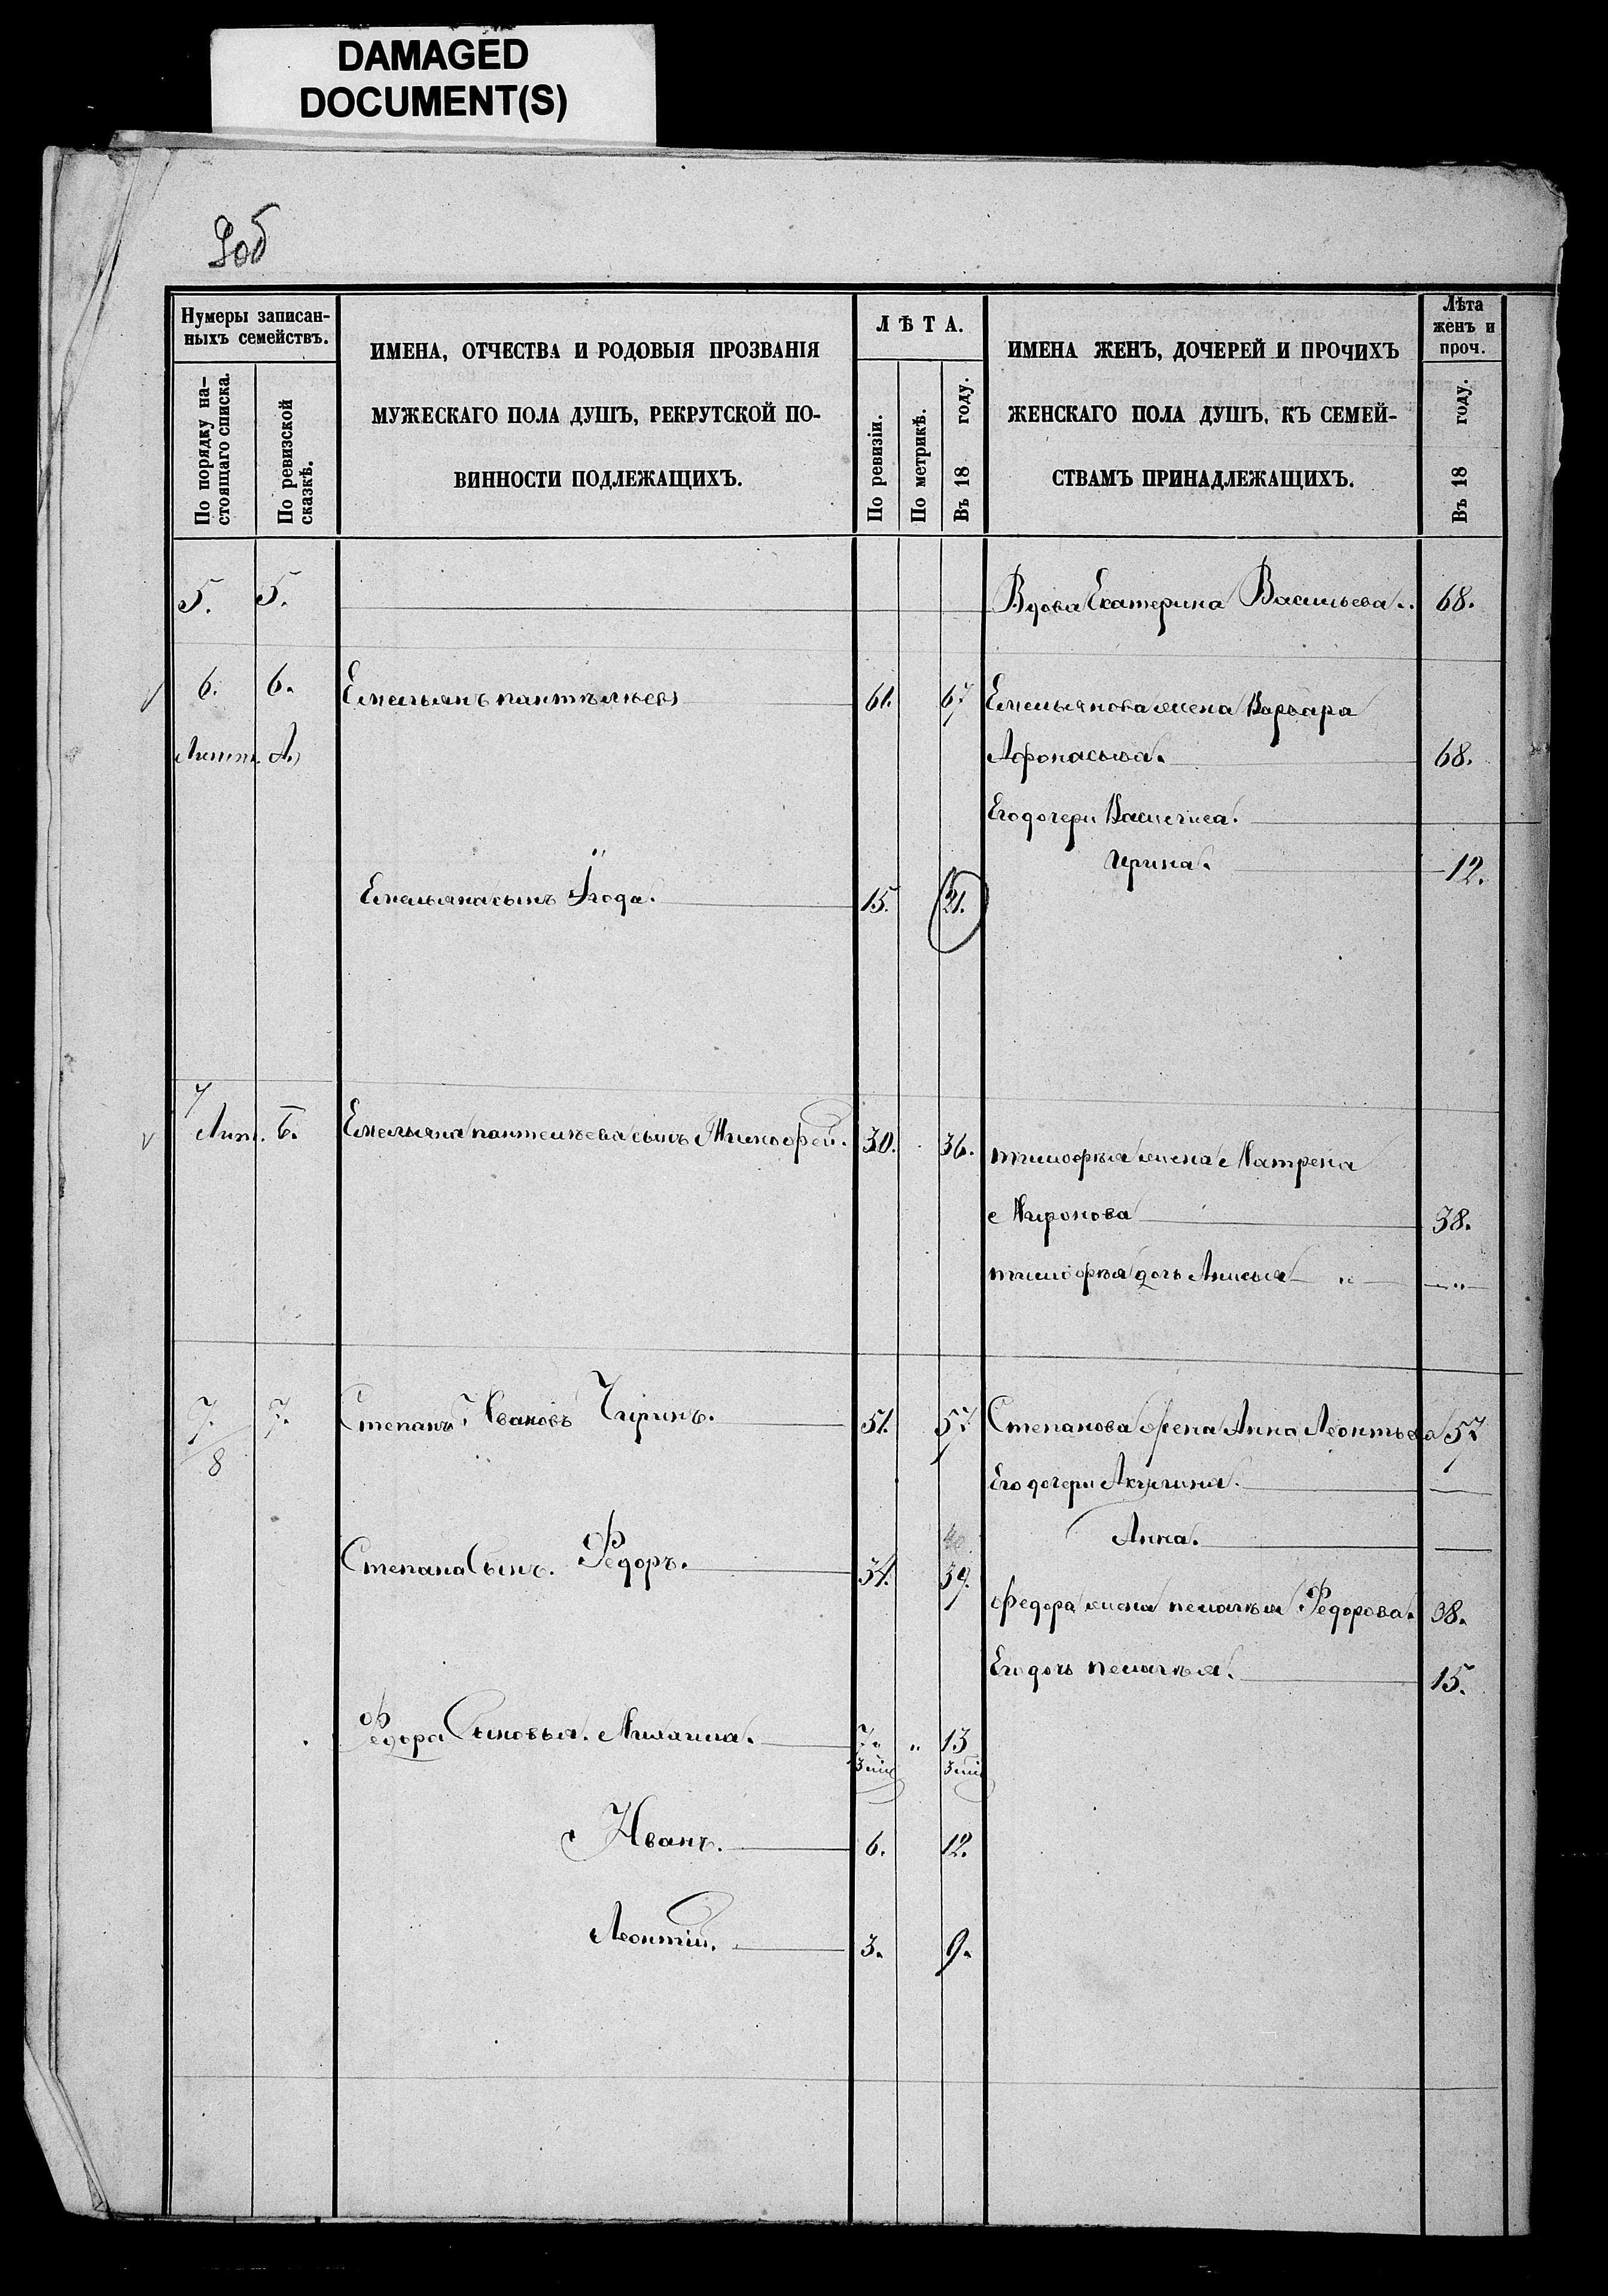 DAMAGED
DOCUMENT(S)
9об
Нумеры записан-
ныхъ семействъ.
По порядку на-
стоящаго списка.
По ревизской
сказкѣ.
ИМЕНА, ОТЧЕСТВА И РОДОВЫЯ ПРОЗВАНІЯ
МУЖЕСКАГО ПОЛА ДУШЪ, РЕКРУТСКОЙ ПО-
ВИННОСТИ ПОДЛЕЖАЩИХЪ.
ЛѢТА.
По ревизіи.
По метрикѣ.
Въ 18 году.
ИМЕНА ЖЕНЪ, ДОЧЕРЕЙ И ПРОЧИХЪ
ЖЕНСКАГО ПОЛА ДУШЪ, КЪ СЕМЕЙ-
СТВАМЪ ПРИНАДЛЕЖАЩИХЪ.
Лѣта
женъ и
проч.
Въ 18 году.
5. 5. Вдова Екатерина Васильева. 68.
6. 6. Емельянъ пантѣлѣевъ 61. 67 Емельянова жена Варвара
Литт. А) Афонасьева. 68.
Его дочери Василиса.
Ирина. 12.
Емельяна сынъ 15. 21.
7
Лит. Б. Емельяна пантелѣева сынъ Тимофей. 30. 36. тимофѣя жена Матрена
Миронова 38.
тимофѣя дочь Анисья "
7. 7. Степанъ Ивановъ Чиринъ. 51. 57 Степанова жена Анна Леонтьева 57
8
Его дочери Акулина.
Анна.
Степана Сынъ. Федоръ. 34. 40 39.
Федора жена пелагѣя Федорова. 38.
Его дочь пелагѣя. 15.
Федора Сыновья. Михаила. 7 " 13
Иванъ. 6. 12.
Леонтій. 3. 9.